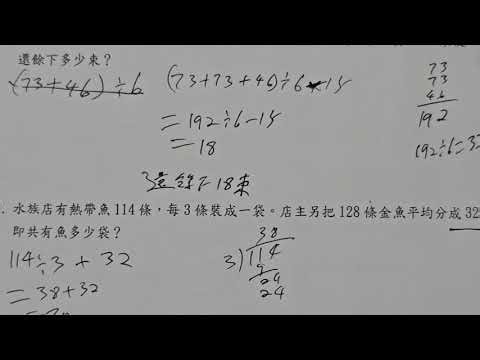 還餘下多少束？
(73+46)÷6
(73+73+46)÷6-15
=192÷6-15
=18
還餘下18束
73
73
46
192
192÷6=3
. 水族店有熱帶魚114條，每3條裝成一袋。店主另把128條金魚平均分成32
即共有魚多少袋？
114÷3+32
=38+32
38
3)114
9
24
24